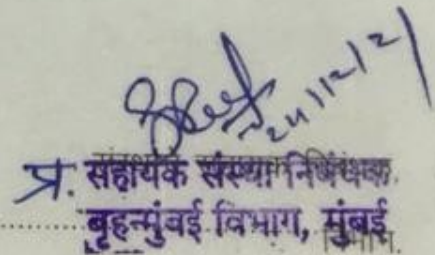 24/12/21
प्र. सहायक संस्था निबंधक
बृहन्मुंबई विभाग, मुंबई
विभाग.